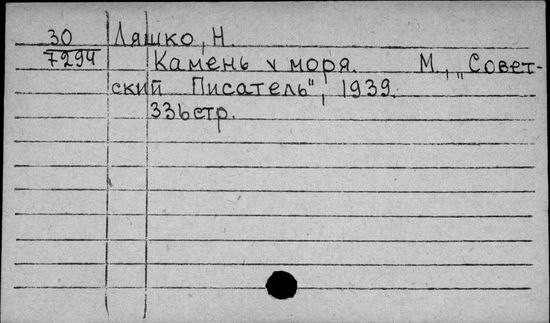 30 Ляшко, Н.
7294 Камень у моря. М., „Совет-
ский Писатель", 1939.
336стр.